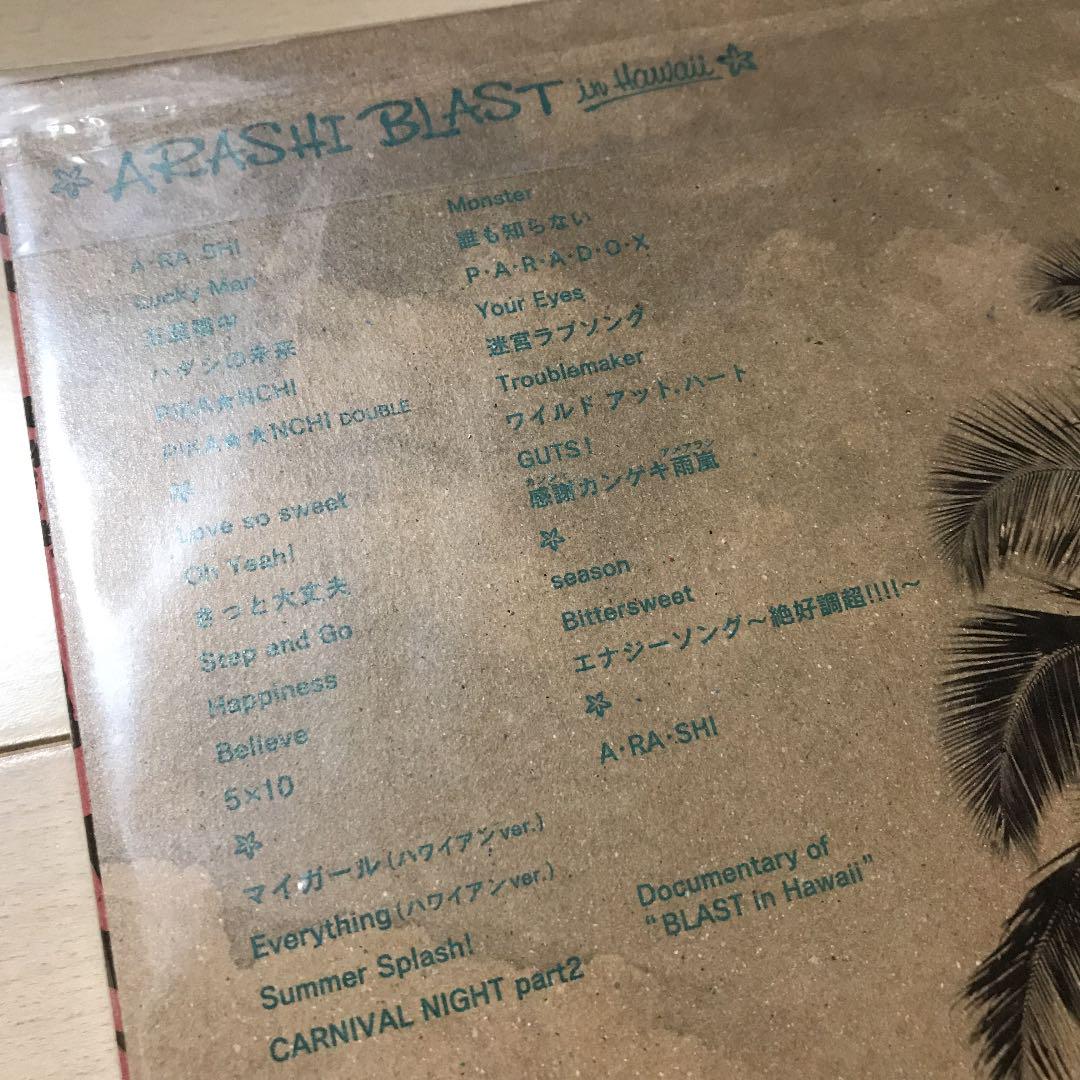 ARASHI BLAST in Hawaii
A・RA・SHI
Lucky Man
五里霧中
ハダシの未来
PIKA★NCHI
PIKA★★NCHI DOUBLE
Love so sweet
Oh Yeah!
きっと大丈夫
Step and Go
Happiness
Believe
5×10
マイガール(ハワイアンver.)
Everything(ハワイアンver.)
Summer Splash!
CARNIVAL NIGHT part2
Monster
誰も知らない
P・A・R・A・D・O・X
Your Eyes
迷宮ラブソング
Troublemaker
ワイルド アット・ハート
GUTS!
感謝カンゲキ雨嵐
season
Bittersweet
エナジーソング〜絶好調超!!!!〜
A・RA・SHI
Documentary of
"BLAST in Hawaii"